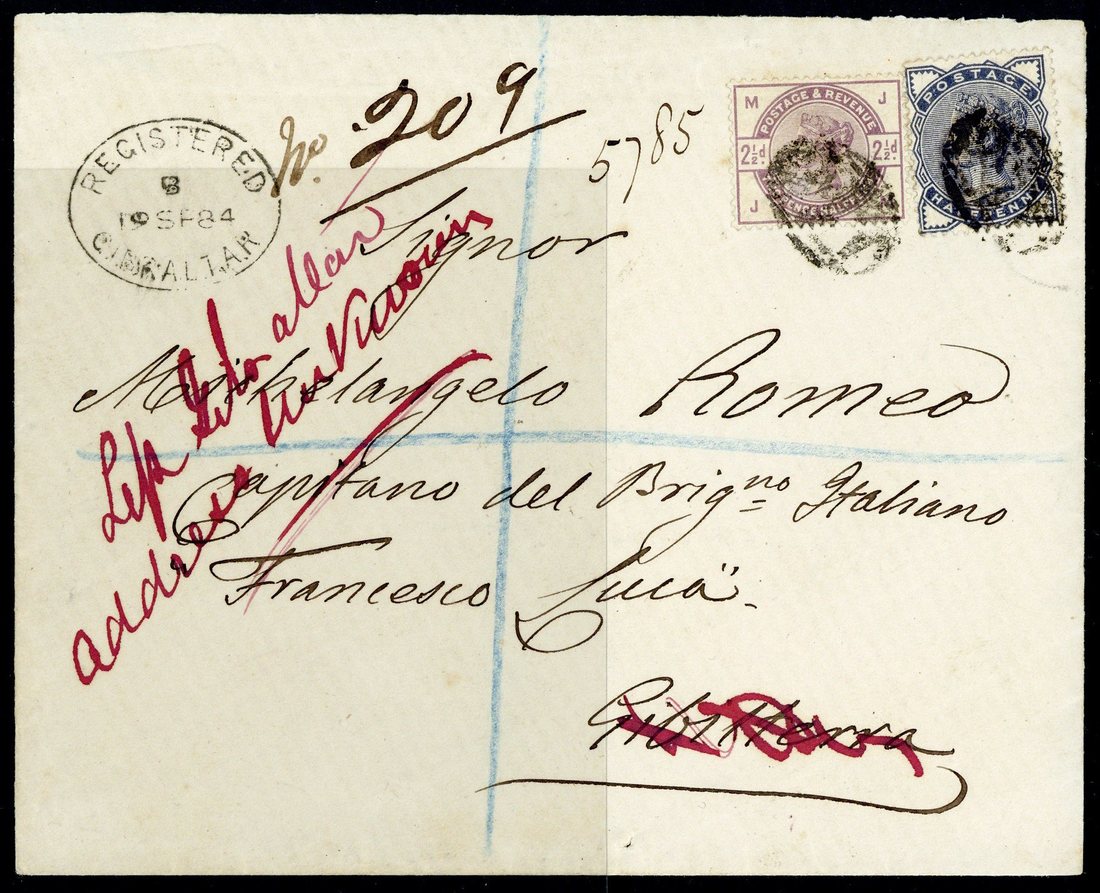 REGISTERED
B
19 SP 84
GIBRALTAR
No. 209
5785
M J
POSTAGE & REVENUE
2½d. 2½d.
J
POSTAGE
HALFPENNY
Signor
Michelangelo Romeo
Capitano del Brigno Italiano
Francesco Lucà.
Gibilterra
Left Gibraltar
address unknown